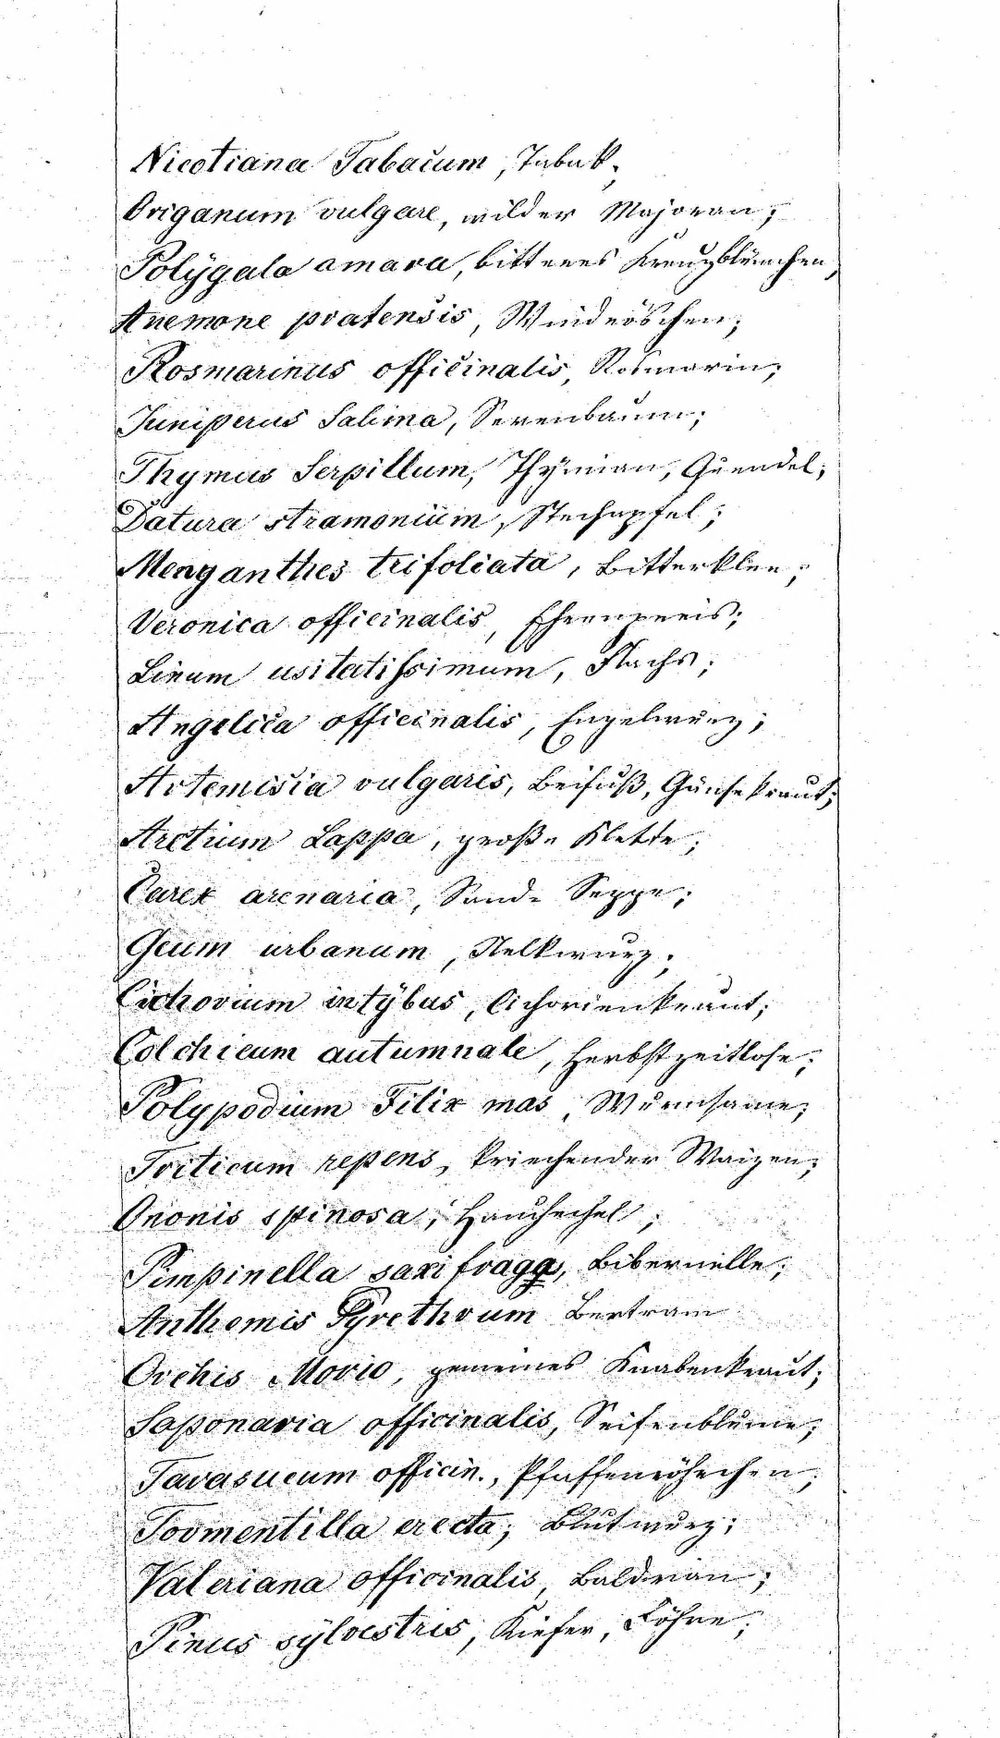 Nicotiana Tabacum, Tabak;
Origanum vulgare, wilder Majoran;
Polÿgala amara, bitteres Kreuzblümchen;
Anemone pratensis, Windröschen;
Rosmarinus officinalis, Rosmarin;
Juniperus Sabina, Sevenbaum;
Thymus Serpillum, Thÿmian, Quendel;
Datura stramonium, Stechapfel;
Menyanthes trifoliata, Bitterklee;
Veronica officinalis, Ehrenpreis;
Linum usitatissimum, Flachs;
Angelica officinalis, Engelwurz;
Artemisia vulgaris, Beifuß, Gänsekraut;
Arctium Lappa, große Klette;
Carex arenaria, Sand-Segge;
Geum urbanum, Nelkwurz;
Cichorium intÿbus, Cichorienkraut;
Colchicum autumnale, Herbstzeitlose;
Polypodium Filix mas, Wurmsame;
Triticum repens, kriechender Waizen;
Ononis spinosa, Hauhechel;
Pimpinella saxifraga, Bibernelle;
Anthemis Pyrethrum Bertram
Orchis Morio, gemeines Knabenkraut;
Saponaria officinalis, Seifenblume;
Taraxucum officin., Pfaffenröhrchen;
Tormentilla erecta, Blutwurz;
Valeriana officinalis, Baldrian;
Pinus sÿlvestris, Kiefer, Föhre;